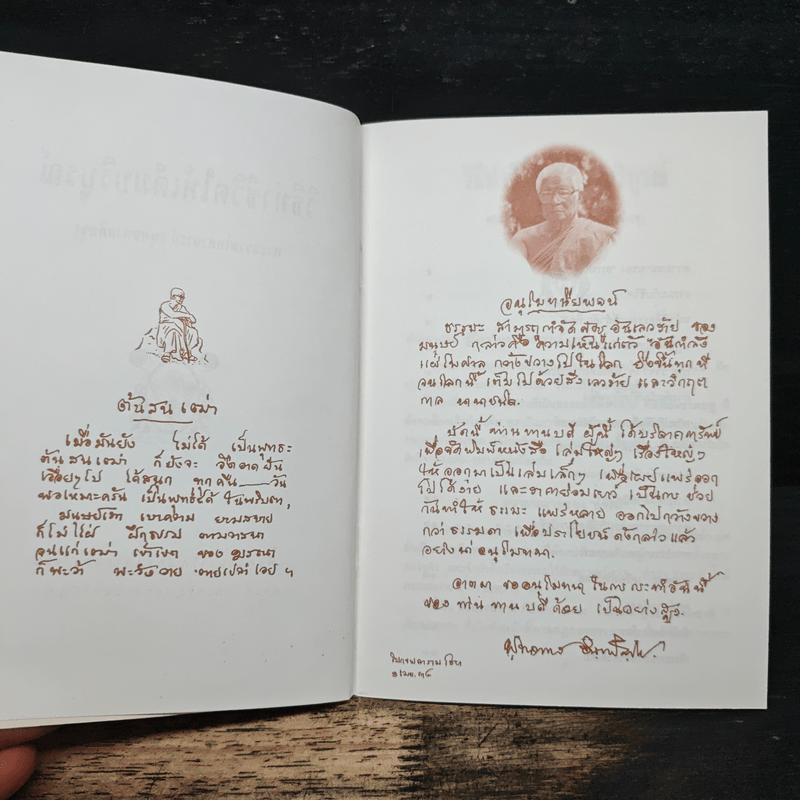 ต้นสนเฒ่า
เมื่อมันยัง ไม่ได้ เป็นพุทธะ
ต้นสนเฒ่า ก็ยังจะ
เรื่อยๆไป ได้สนุก ทุกคืนวัน
พอเหมาะครัน เป็นพุทธะได้ ในพริบตา,
มนุษย์เรา
ก็ไม่ใฝ่ ฝึกฝน ตามวาสนา
จนแก่เฒ่า เข้าเขต ของ มรณา
ก็พะว้า พะวังวาย ตายเปล่าเอย ฯ
อนุโมทนียพจน์
ธรรมะ สามารถกำจัดศัตรู อันเลวร้าย ของ
มนุษย์ กล่าวคือความเห็นแก่ตัว อันกำลัง
แผ่ไพศาล กว้างขวางไปในโลก ยิ่งขึ้นทุกที
จนโลกนี้ เต็มไปด้วยสิ่งเลวร้าย และวิกฤต
กาล นานาชนิด.
บัดนี้ ท่านทานบดี ผู้นี้ ได้บริจาคทรัพย์
เพื่อจัดพิมพ์หนังสือ เล่มใหญ่ๆ เรื่องใหญ่ๆ
ให้ออกมาเป็นเล่มเล็กๆ เพื่อเผยแพร่ออก
ไปได้ง่าย และราคาย่อมเยาว์ เป็นการช่วย
กันทำให้ ธรรมะ แพร่หลาย ออกไปกว้างขวาง
กว่า ธรรมดา เพื่อประโยชน์ ดังกล่าวแล้ว
อย่างน่าอนุโมทนา.
อาตมา ขออนุโมทนา ในการกระทำอันนี้
ของ ท่านทานบดีด้วย เป็นอย่างสูง.
พุทธทาส อินฺทปญฺโญ
โมกขพลาราม ไชยา